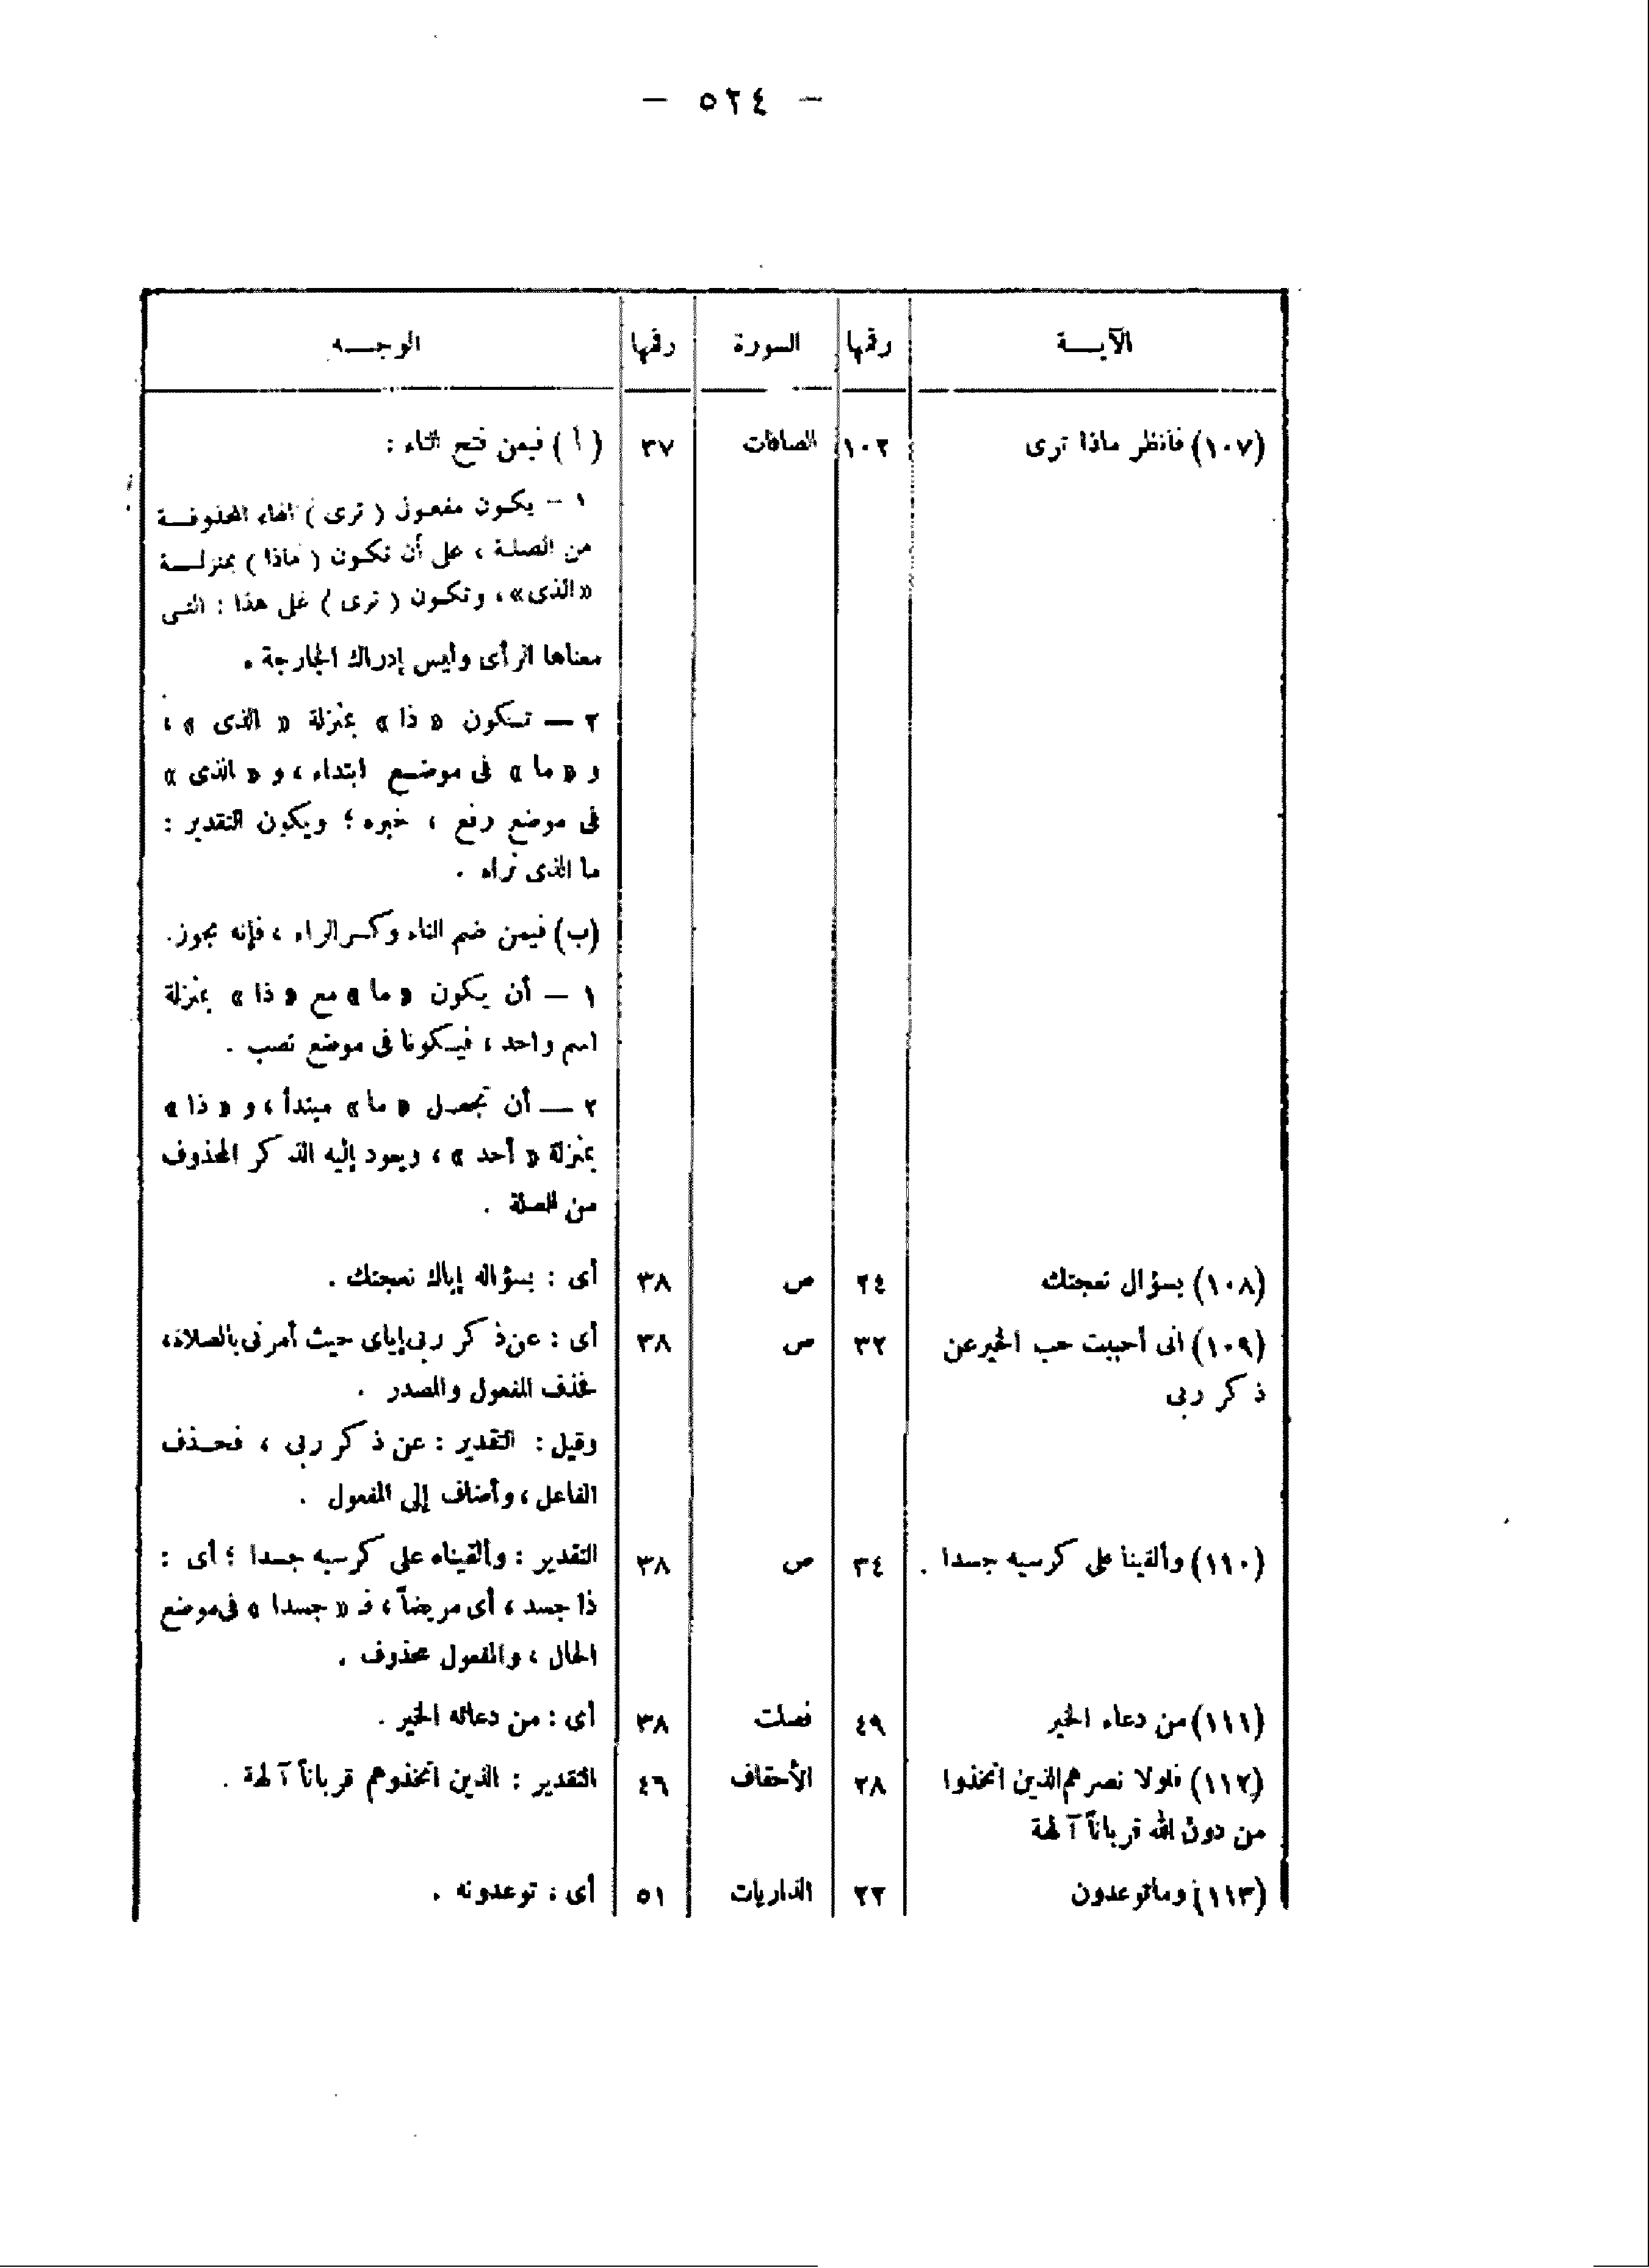 — ٥٢٤ —
الآيــة رقمها السورة رقمها الوجــه
(١٠٧) فانظر ماذا ترى ١٠٢ الصافات ٣٧ ( أ ) فيمن فتح التاء :
١ – يكون مفعول ( ترى ) الهاء المحذوفــة
من الصلة ، على أن تكون ( ماذا ) بمنزلــة
«الذى» ، وتكون ( ترى ) على هذا : التــى
معناها الرأى وليس إدراك الجارحة .
٢ — تـكون « ذا » بمنزلة « الذى » ،
و « ما » فى موضـع ابتداء ، و « الذى »
فى موضع رفع ، خبره ؛ ويكون التقدير :
ما الذى تراه .
(ب) فيمن ضم التاء وكسر الراء ، فإنه يجوز.
١ – أن يكون « ما » مع « ذا » بمنزلة
اسم واحد ، فيـكونا فى موضع نصب .
٢ — أن تجعـل « ما » مبتدأ ، و « ذا »
بمنزلة « أحد » ، ويعود إليه الذكر المحذوف
من الصلة .
(١٠٨) بسؤال نعجتك ٢٤ ص ٣٨ أى : بسؤاله إياك نعجتك .
(١٠٩) انى أحببت حب الخير عن ٣٢ ص ٣٨ أى : عن ذكر ربى إياى حيث أمرنى بالصلاة ،
ذكر ربى فحذف المفعول والمصدر .
وقيل : التقدير : عن ذكر ربى ، فحـذف
الفاعل ، وأضاف إلى المفعول .
(١١٠) وألقينا على كرسيه جسدا . ٣٤ ص ٣٨ التقدير : وألقيناه على كرسيه جسدا ؛ أى :
ذا جسد ، أى مريضاً ، فـ « جسدا » فى موضع
الحال ، والمفعول محذوف .
(١١١) من دعاء الخير ٤٩ فصلت ٣٨ أى : من دعائه الخير .
(١١٢) فلولا نصرهم الذين اتخذوا ٢٨ الأحقاف ٤٦ التقدير : الذين اتخذوهم قرباناً آلهة .
من دون الله قرباناً آلهة
(١١٣) وماتوعدون ٢٢ الذاريات ٥١ أى : توعدونه .